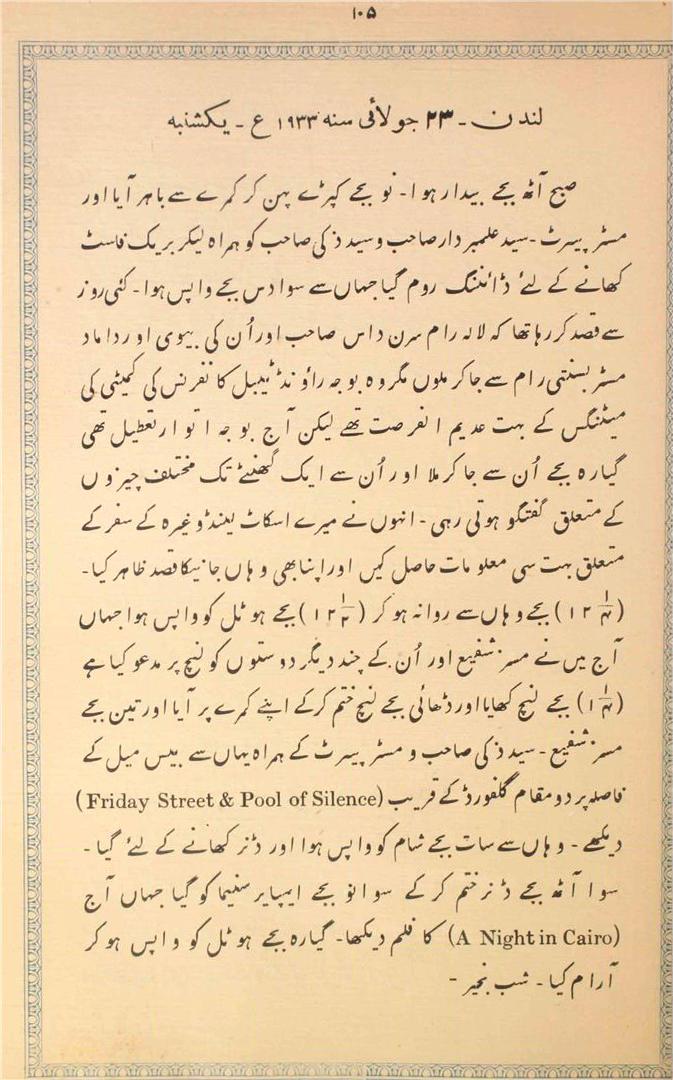 ۱۰۵
لندن - ۲۳ جولائی سنہ ۱۹۳۳ ع - یکشنبہ
صبح آٹھ بجے بیدار ہوا - نو بجے کپڑے پہن کر کمرے سے باہر آیا اور
مسٹر پیرٹ - سید علمبردار صاحب و سید ذکی صاحب کو ہمراہ لیکر بریک فاسٹ
کھانے کے لئے ڈائننگ روم گیا جہاں سے سوا دس بجے واپس ہوا - کئی روز
سے قصد کر رہا تھا کہ لالہ رام سرن داس صاحب اور اُن کی بیوی اور داماد
مسٹر بسنتی رام سے جا کر ملوں مگر وہ بوجہ راؤنڈ ٹیبل کانفرنس کی کمیٹی کی
میٹنگس کے بہت عدیم الفرصت تھے لیکن آج بوجہ اتوار تعطیل تھی
گیارہ بجے اُن سے جا کر ملا اور اُن سے ایک گھنٹے تک مختلف چیزوں
کے متعلق گفتگو ہوتی رہی - انہوں نے میرے اسکاٹ لینڈ وغیرہ کے سفر کے
متعلق بہت سی معلومات حاصل کیں اور اپنا بھی وہاں جانیکا قصد ظاہر کیا -
(۱۲ ۱/۴) بجے وہاں سے روانہ ہو کر (۱۲ ۱/۲) بجے ہوٹل کو واپس ہوا جہاں
آج میں نے مسز شفیع اور اُن کے چند دیگر دوستوں کو لنچ پر مدعو کیا ہے
(۱ ۱/۴) بجے لنچ کھایا اور ڈھائی بجے لنچ ختم کر کے اپنے کمرے پر آیا اور تین بجے
مسز شفیع - سید ذکی صاحب و مسٹر پیرٹ کے ہمراہ یہاں سے بیس میل کے
فاصلہ پر دو مقام گلفورڈ کے قریب (Friday Street & Pool of Silence)
دیکھے - وہاں سے سات بجے شام کو واپس ہوا اور ڈنر کھانے کے لئے گیا -
سوا آٹھ بجے ڈنر ختم کر کے سوا نو بجے ایمپایر سنیما کو گیا جہاں آج
(A Night in Cairo) کا فلم دیکھا - گیارہ بجے ہوٹل کو واپس ہو کر
آرام کیا - شب بخیر -